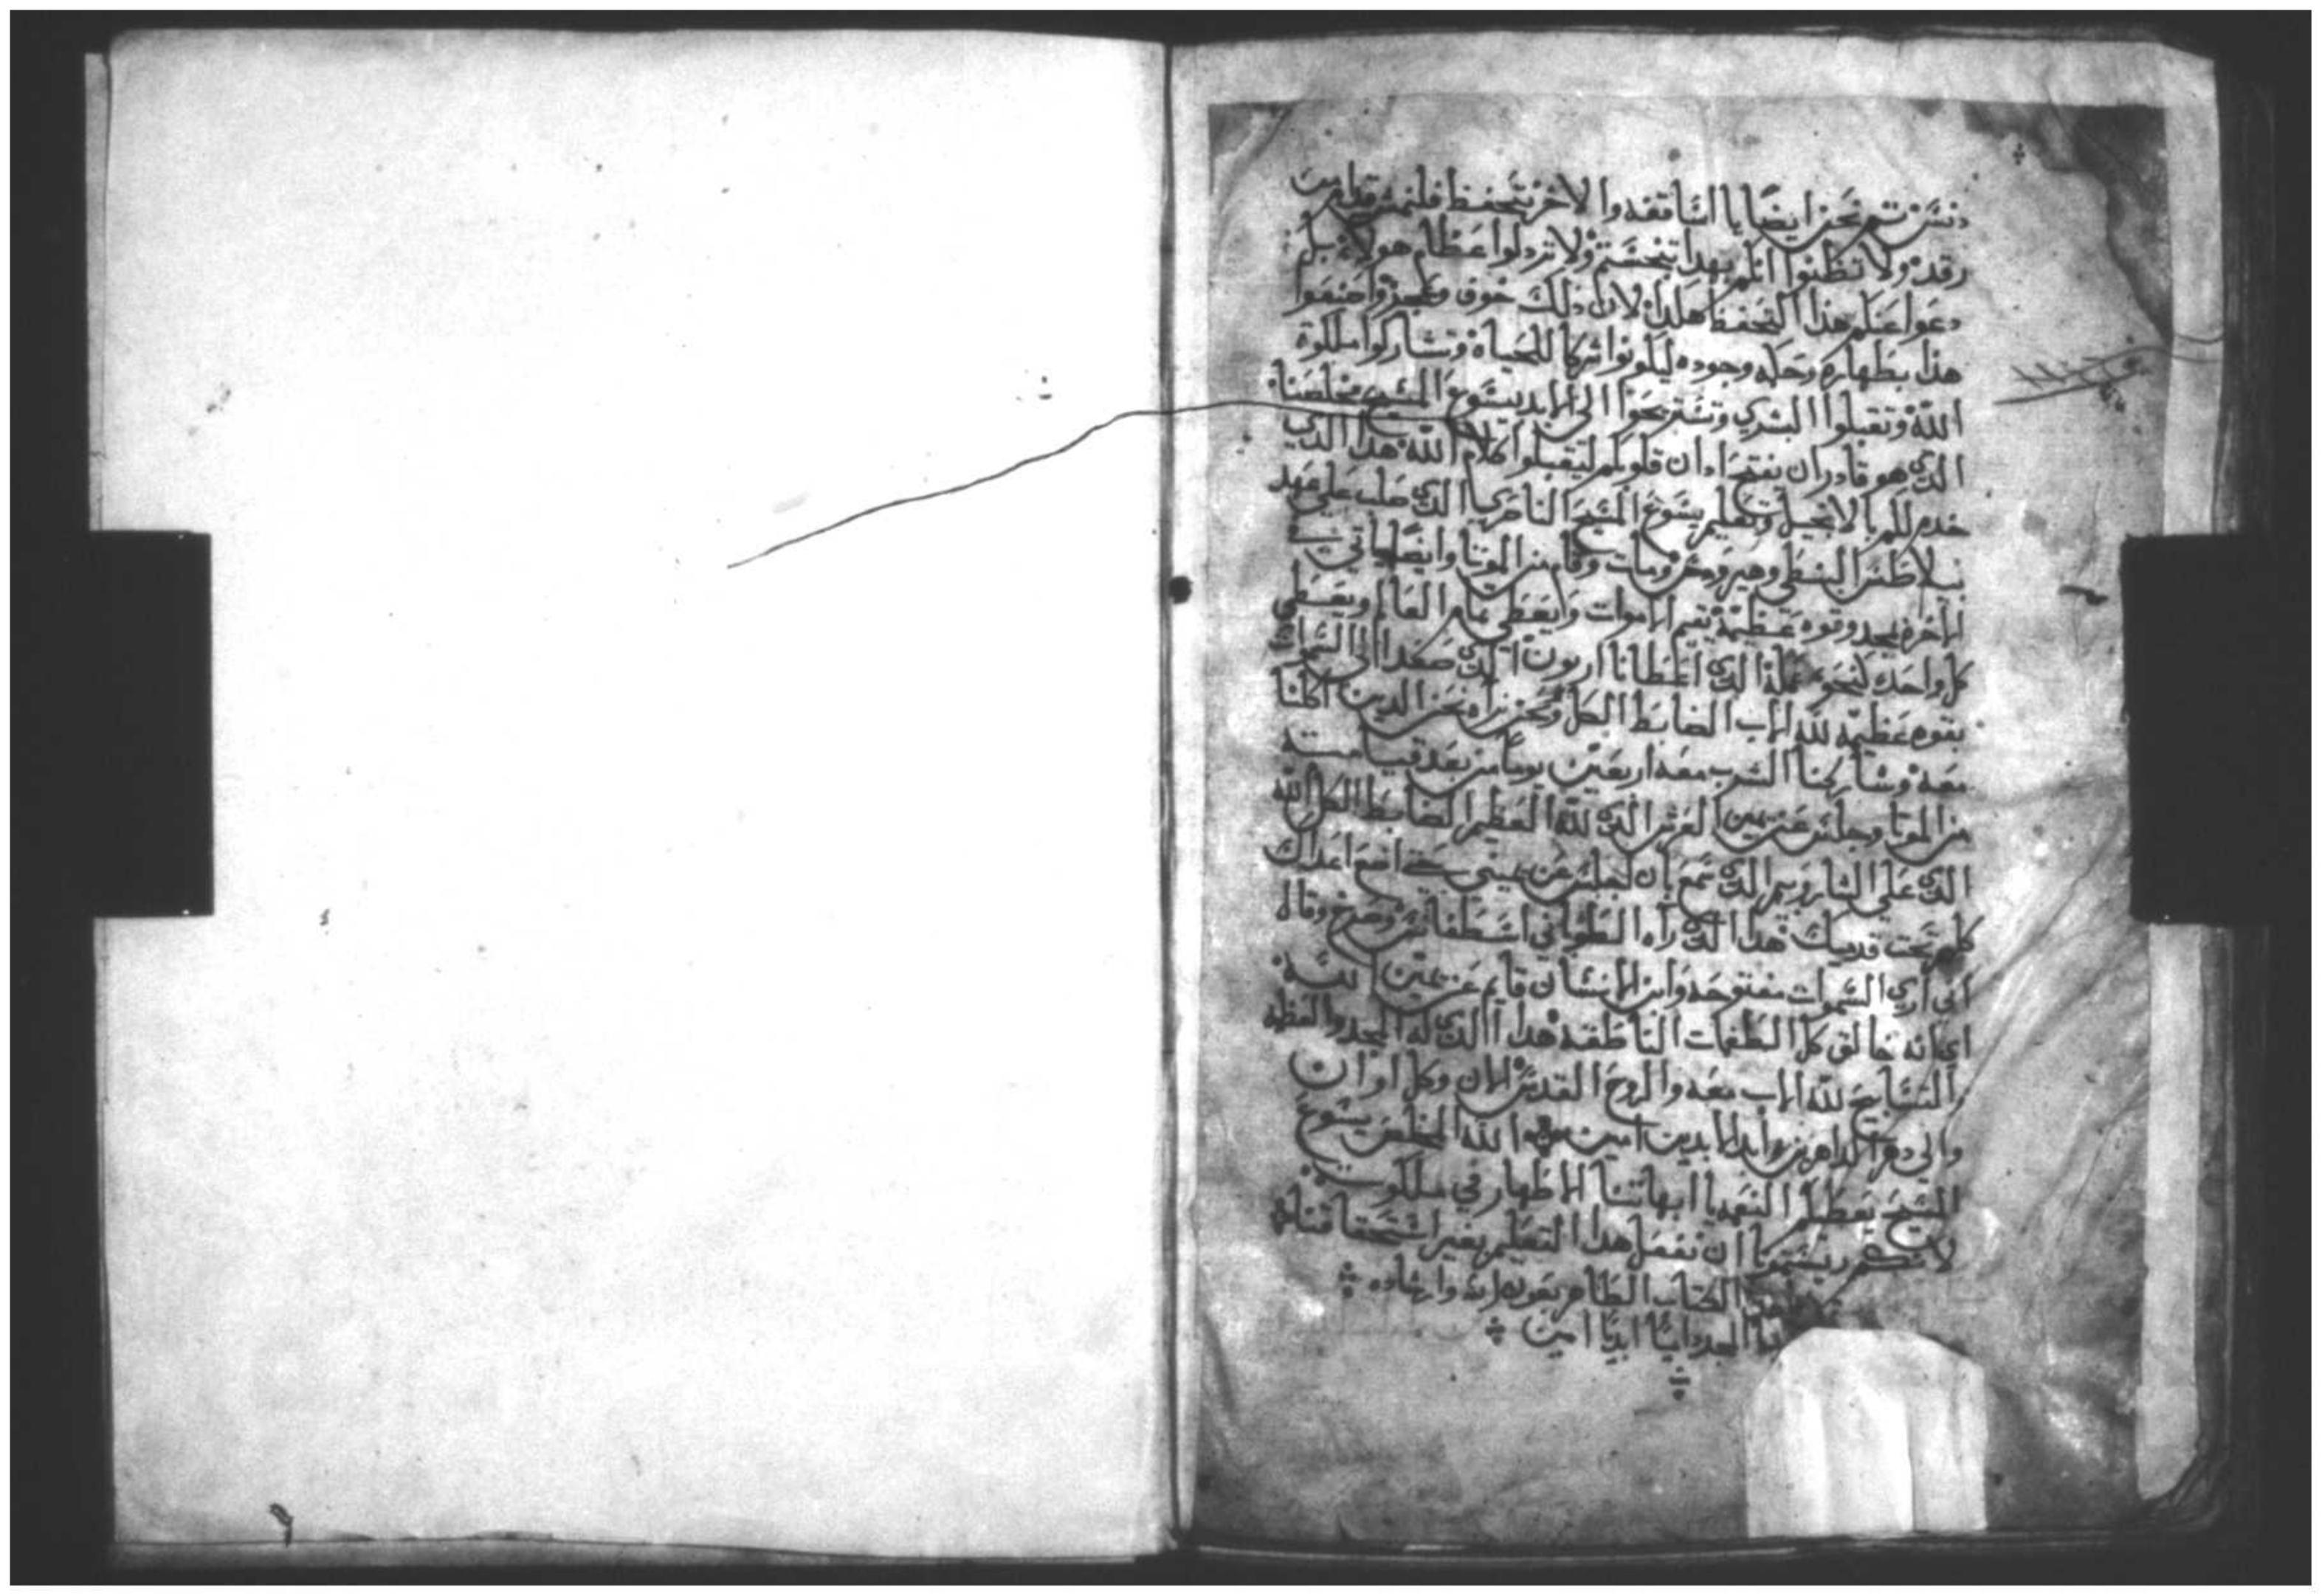 دنس ثم نحن ايضا يا اساقفه والاخر نتحفظ فلنهرق من
رقد ولا تظنوا انكم بهدا تتنجستم ولا تردلوا عظام هولاء بل
دعوا عنكم هذا التحفظ هكذا لان ذلك خوف وعجز واصنعوا
هذا بطهاره وحكمه وجوده ليكونوا شركا للحياة وتشاركوا ملكوة
الله وتقبلوا البشري وتستريحوا الي الابد يسوع المسيح مخلصنا
الدي هو قادر ان يفتح ادان قلوبكم لتقبلوا كلام الله هدا الدي
خدم لكم بالانجيل وتعليم يسوع المسيح الناصري الدي صلب علي عهد
بيلاطس البنطي وهيرودس ومات وقام من الموتا وايضا ياتي في
الاخرة بمجد وقوه عظيمة يقيم الاموات ويعطي تمام العالم ويعطي
كل واحد كنحو عمله الدي اعطانا اربون الدي صعد الي السموات
بقوه عظيمه لله الاب الضابط الكل ونحن نراه نحن الدين اكلنا
معه وشاركنا الشرب معه اربعين يوما من بعد قيامته
من الموتا وجلس عن يمين العرش الدي لله العظيم الضابط الكل الله
الدي علي الشاروبيم الدي سمع بان اجلس عن يميني حتي اضع اعداك
كلهم تحت قدميك هدا الدي راه الطوباني اسطفانس وصرخ وقال
اني اري السموات مفتوحه وابن الانسان قايم عن يمين الله
اي انه خالق كل الطغمات الناطقه هدا الدي له المجد والعظمه
التسابيح لله الاب معه والروح القدس الان وكل اوان
والي دهر الداهرين وابد الابدين امين الله المخلص يسوع
المسيح يعطيكم النعمه يا ابهاتنا الاظهار في ملكوت
لانكم رسمتم لنا ان نفعل هدا التعليم بغير استحقاقنا
الكتاب الطاهر بعون الله وارشاده
المجد دايما ابديا امين